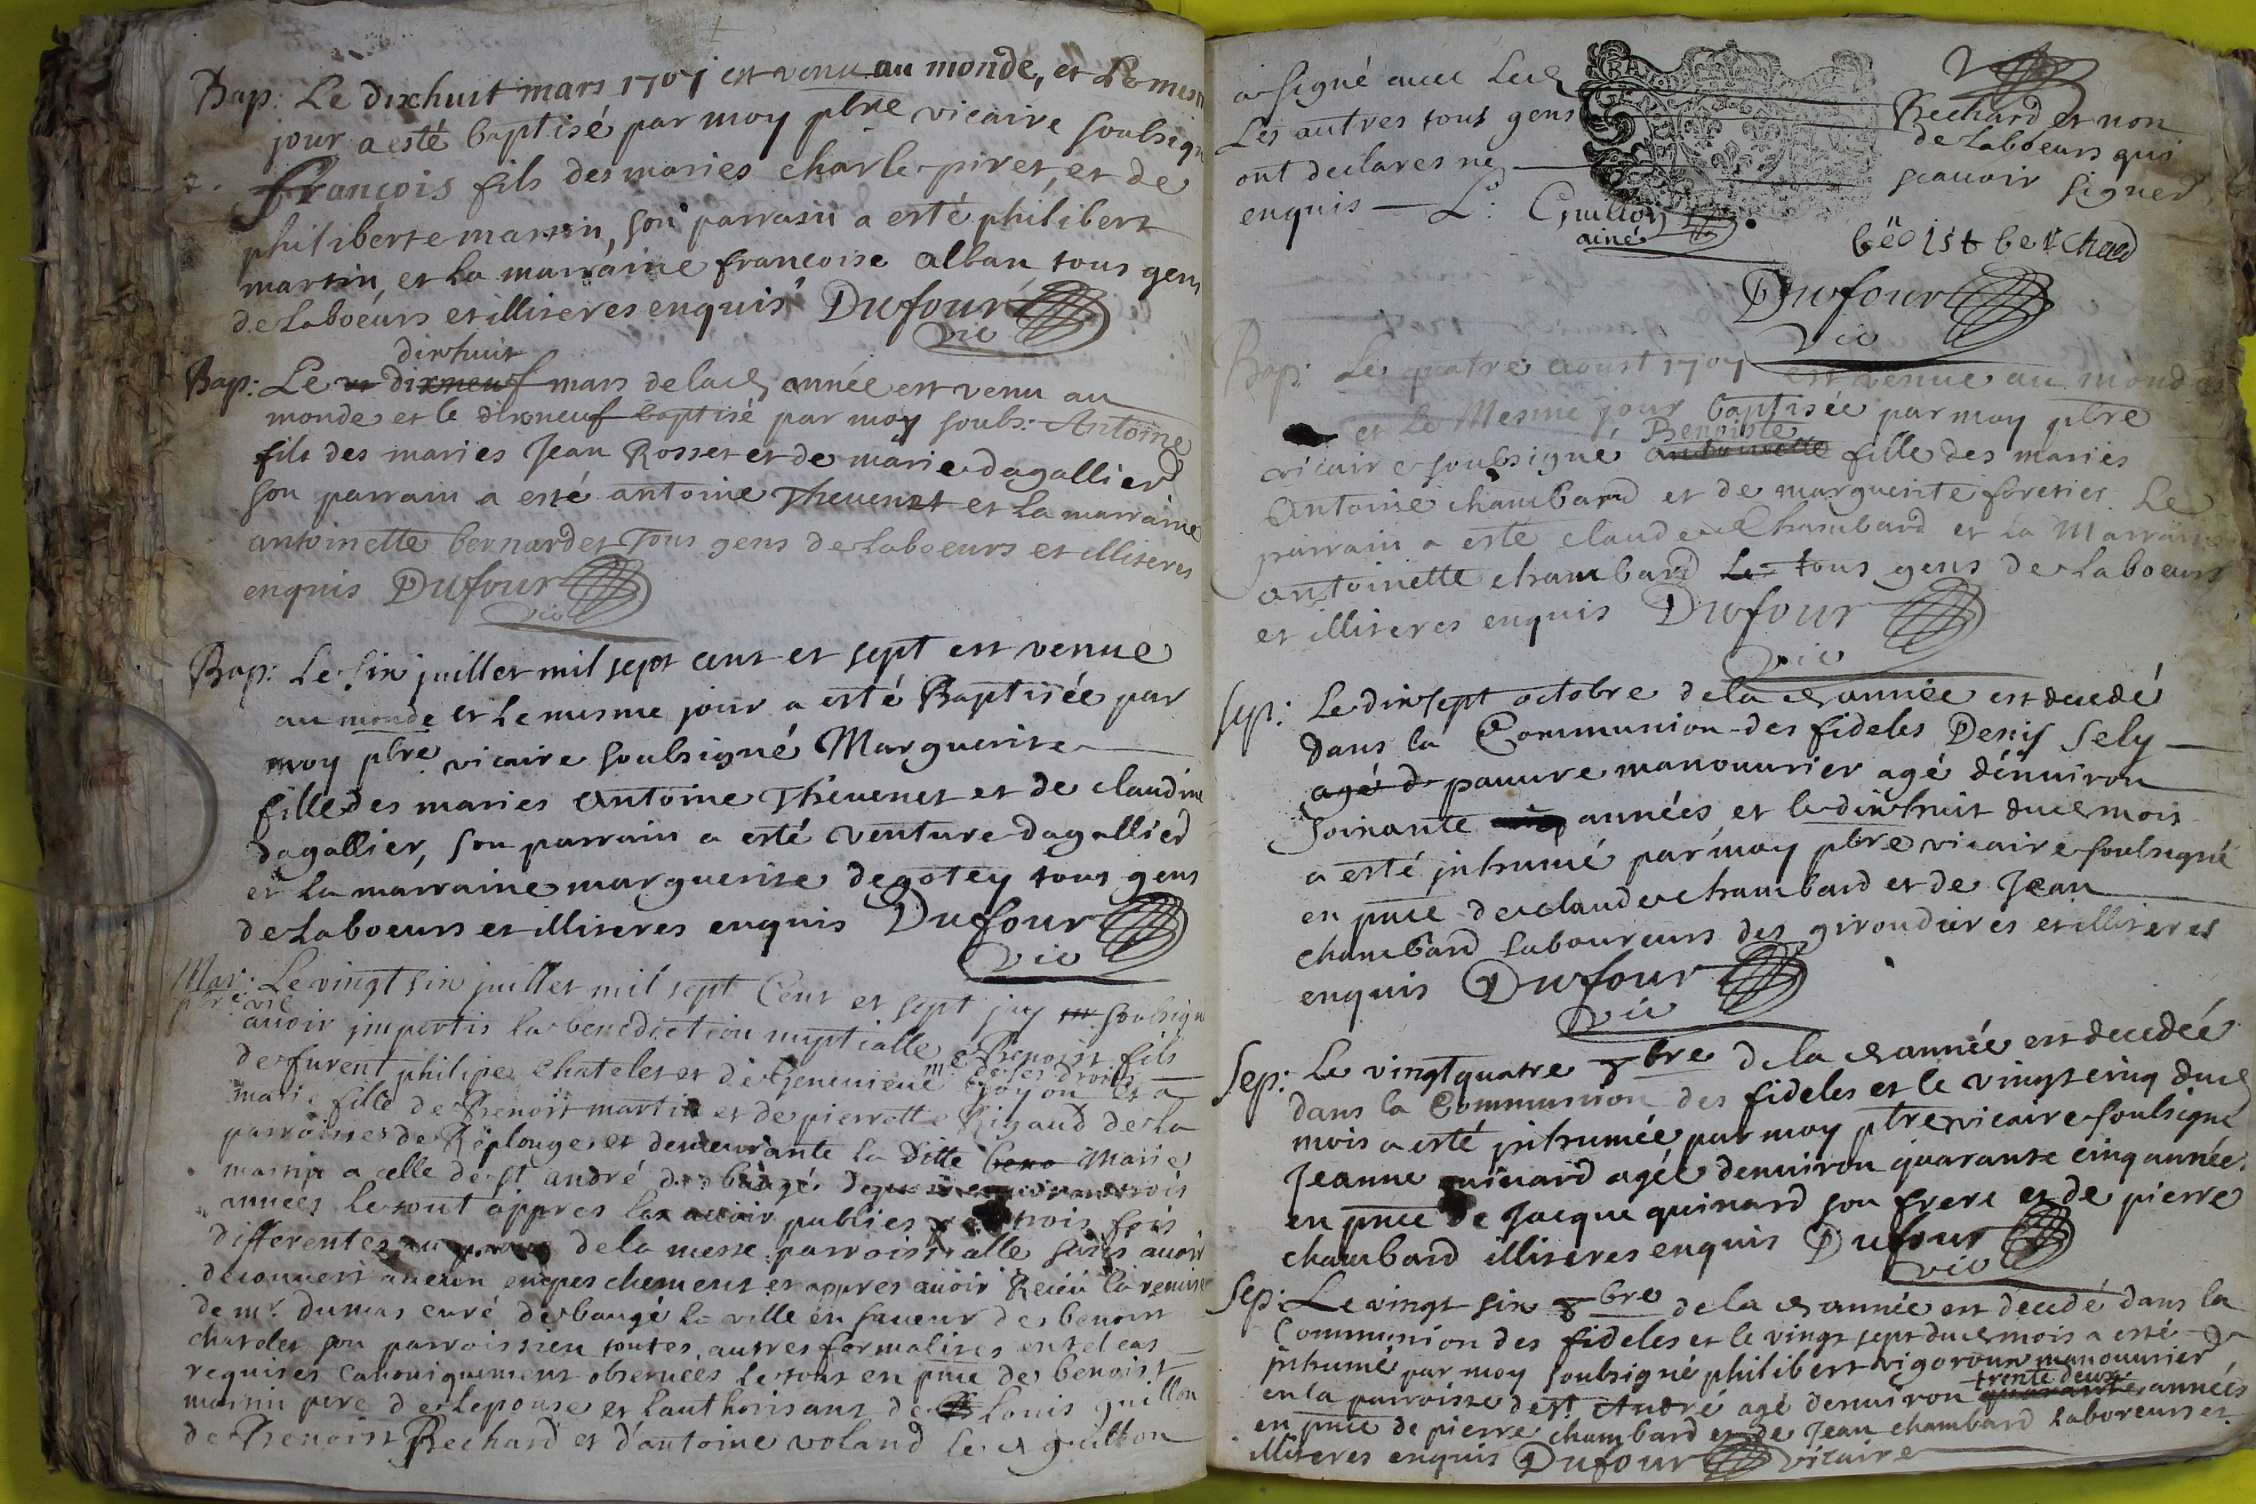 Bap: Le dixhuit mars 1707 est venu au monde, et Le mesm
jour a esté baptisé par moy pbre vicaire soubsign
françois fils des maries charle piret, et de
philiberte martin, son parrain a esté philibert
martin, et la marraine françoise alban tous gens
de Laboeurs et illiteres enquis Dufour
vic
dixhuit
Bap: Le dixneuf mars de lad année est venu au
monde et le dixneuf baptisé par moy soubs: Antoine
fils des maries Jean Rosset et de marie dagallier
son parrain a esté antoine Thevenet et la marraine
antoinette bernardet Tous gens de Laboeurs et illiteres
enquis Dufour
vic
Bap: Le six juillet mil sept cent et sept est venue
au monde et le mesme jour a esté Baptisée par
moy pbre vicaire soubsigné Marguerite
fille des maries antoine Thevenet et de claudine
dagallier, son parrain a esté venture dagallier
et la marraine marguerite degotey tous gens
de Laboeurs et illiteres enquis Dufour
vic
Mar: Le vingt six juillet mil sept Cent et sept jay soubsigné
pbre vic
avoir impertis la benediction nuptialle a Benoist fils
de furent philipe chatelet et de Genevieve Goyon et a
me de ses droits
marie fille de Benoist martin et de pierrette Rigaud de la
parroisse de Replonge et demeurante la ditte Marie
martin a celle de st andré de baugé trois
annees le tout appres les avoir publies trois fois
differentes de la messe parroissialle sans avoir
decouvert aucun empeschement et appres avoir Receu la remise
de mr. dumas curé de baugé la ville en faveur de benoist
chatelet son parroissien toutes autres formalites en tel cas
requises canoniquement observées le tout en pnce de benoist
martin pere de lepouse et lauthorisant de Louis guillon
de Benoist Bechard et d'antoine voland led guillon
a signé avec led Bechard et non
Les autres tous gens de Laboeurs qui
ont declares ne scavoir signer
enquis L: Guillon
ainé
bëoist bechard
Dufour
vic
Bap: Le quatre aoust 1707 est venue au monde
et le Mesme jour baptisée par moy pbre
Benoiste
vicaire soubsigné antoinette fille des maries
Antoine chambard et de marguerite foretier Le
parrain a esté claude chambard et la Marraine
antoinette chambard Le tous gens de Laboeurs
et illiteres enquis Dufour
vic
Sep: Le dixsept octobre de lad année est decedé
dans la Communion des fideles Denis Sely
agé d pauvre manouvrier agé denviron
soixante années et le dixhuit dud mois
a esté inhumé par moy pbre vicaire soubsigné
en pnce de claude chambard et de Jean
chambard laboureurs des girondieres et illiteres
enquis Dufour
vic
Sep: Le vingtquatre bre de lad année est decedée
dans la Communion des fideles et le vingtcinq dud
mois a esté inhumée par moy pbre vicaire soubsigné
Jeanne quinard agée denviron quarante cinq années
en pnce de Jacque quinard son frere et de pierre
chambard illiteres enquis Dufour
vic
Sep: Le vingt six bre de lad année est decedé dans la
Communion des fideles et le vingt sept dud mois a esté
inhumé par moy soubsigné philibert vigoroux manouvrier
trente deux
en la parroisse de st André agé denviron quarante années
en pnce de pierre chambard et de Jean chambard laboureurs et
illiteres enquis Dufour vicaire